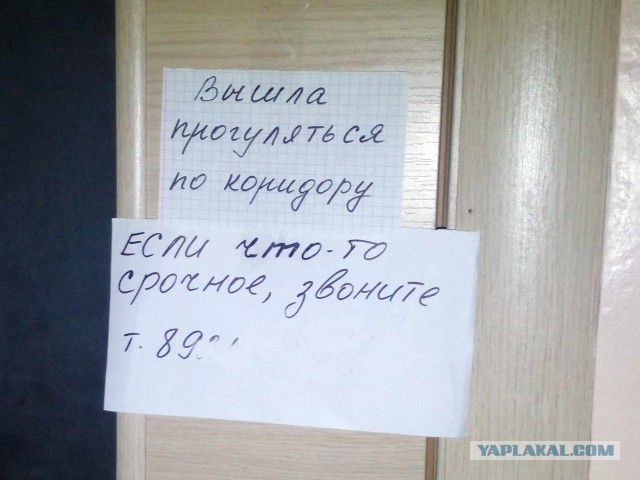 Вышла
прогуляться
по коридору
ЕСЛИ что-то
срочное, звоните
т. 89
YAPLAKAL.COM